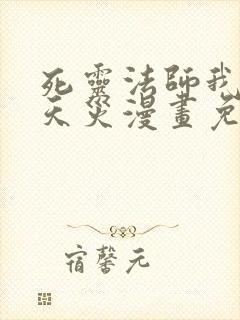 死靈法師我
天災漫畫免
宿馨元